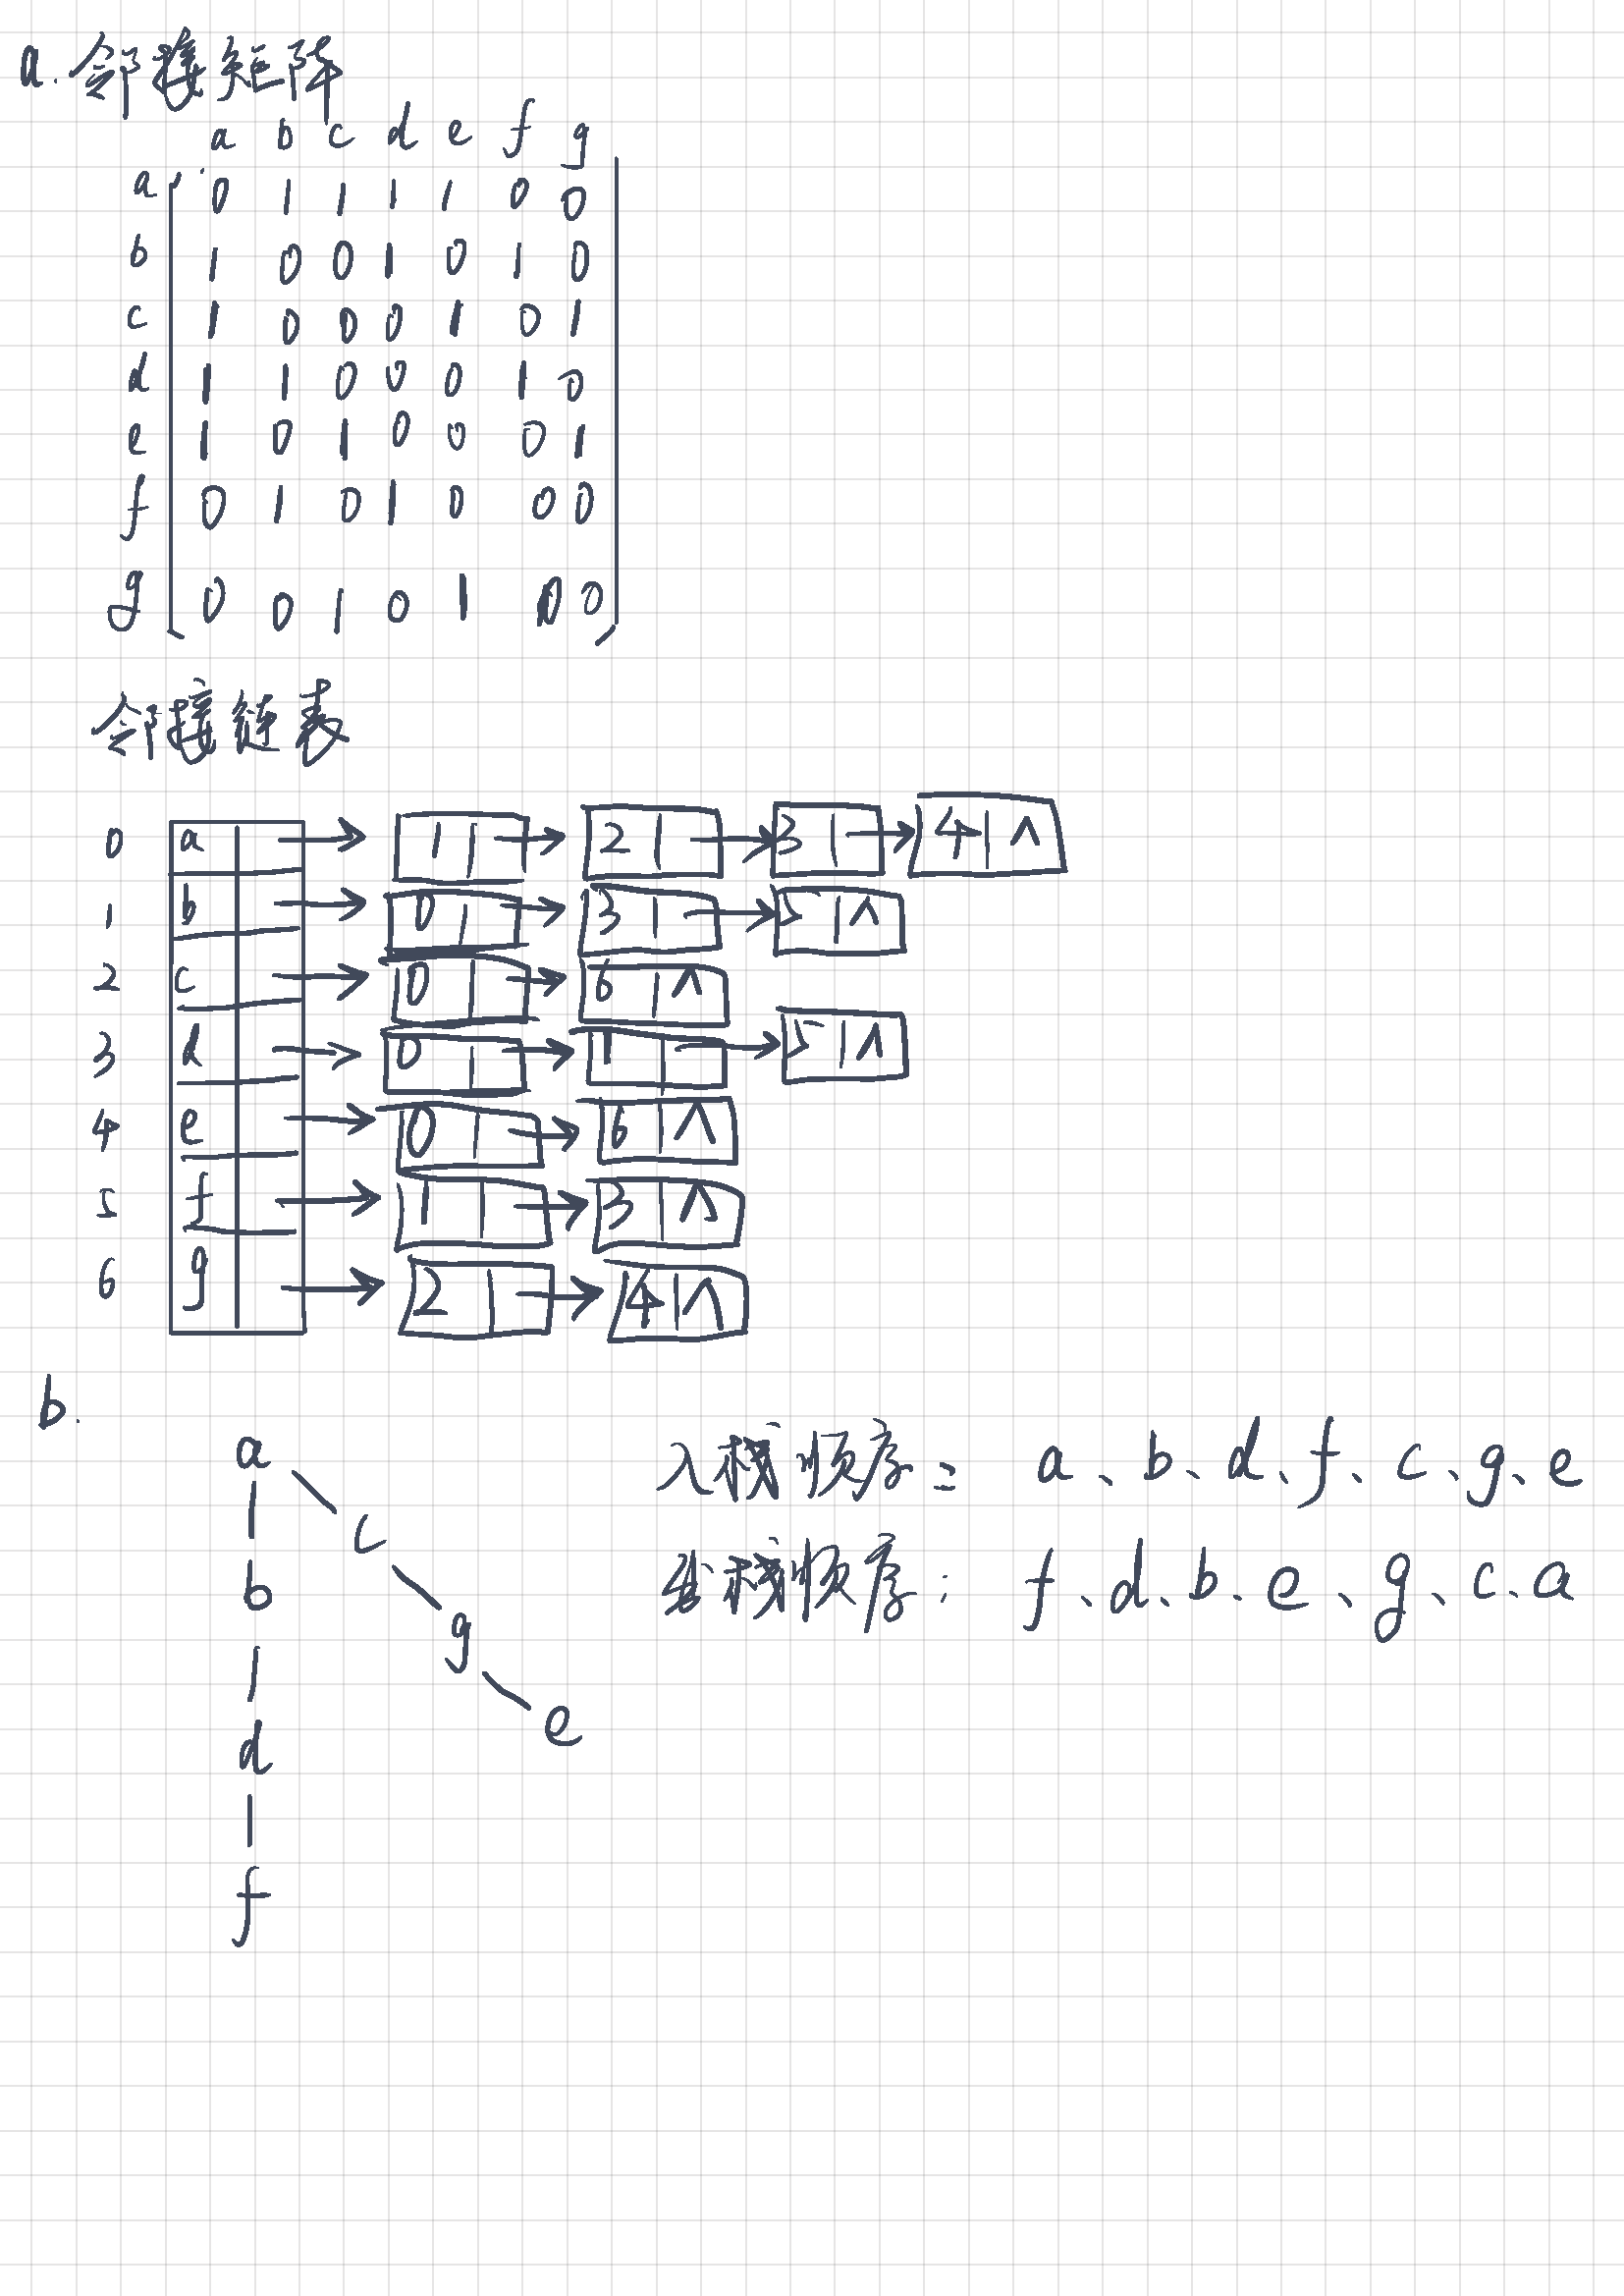 a. 邻接矩阵
a b c d e f g
a 0 1 1 1 1 0 0
b 1 0 0 1 0 1 0
c 1 0 0 0 1 0 1
d 1 1 0 0 0 1 0
e 1 0 1 0 0 0 1
f 0 1 0 1 0 0 0
g 0 0 1 0 1 0 0
邻接链表
0 a → 1 → 2 → 3 → 4 ∧
1 b → 0 → 3 → 5 ∧
2 c → 0 → 6 ∧
3 d → 0 → 1 → 5 ∧
4 e → 0 → 6 ∧
5 f → 1 → 3 ∧
6 g → 2 → 4 ∧
b.
a
c
b
g
e
d
f
入栈顺序: a、b、d、f、c、g、e
出栈顺序: f、d、b、e、g、c、a